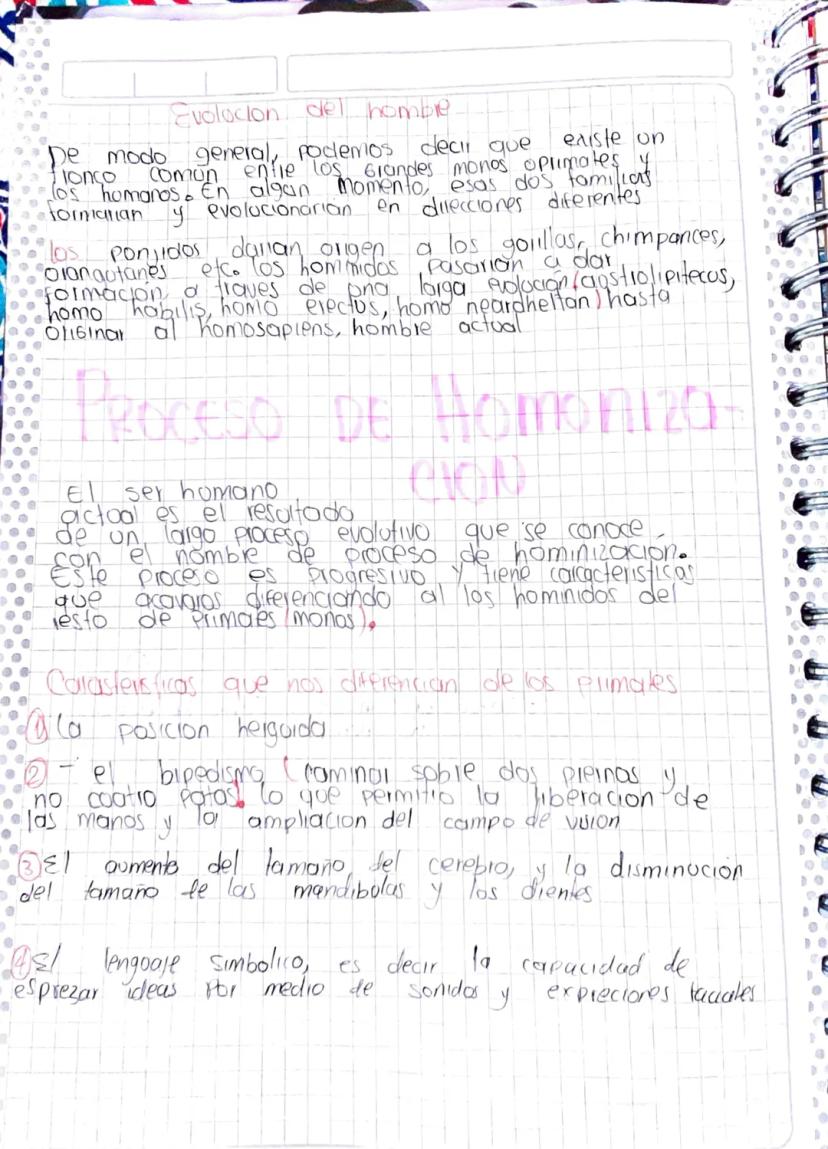 Evolucion del hombre
De modo general, podemos decir que existe un
tronco común entre los grandes monos oprimates y
los humanos. En algun momento, esas dos familias
formarian y evolucionarian en direcciones diferentes
los ponjidos darian origen a los gorilas, chimpances,
orangutanes etc. los hominidos pasarian a dar
formacion a traves de una larga evolucion (agstrolipitecos,
homo habilis, homo erectus, homo nearpheltan) hasta
originar al homosapiens, hombre actual
PROCESO DE Homoniza-
CION
El ser humano
actual es el resultado
de un largo proceso evolutivo que se conoce
con el nombre de proceso de hominizacion.
Este proceso es progresivo y tiene caracteristicas
que acavaros diferenciando al los hominidos del
resto de primaes (monos).
Carasteristicas que nos diferencian de los primates
1) la posicion herguida
2 - el bipedismo (caminar sobre dos piernas y
no cuatro patas) lo que permitio la liberacion de
las manos y la ampliacion del campo de vision
3 El aumento del tamaño del cerebro, y la disminucion
del tamaño de las mandibulas y los dientes
4 El lenguaje simbolico, es decir la capacidad de
esprezar ideas por medio de sonidos y expreciones faciales